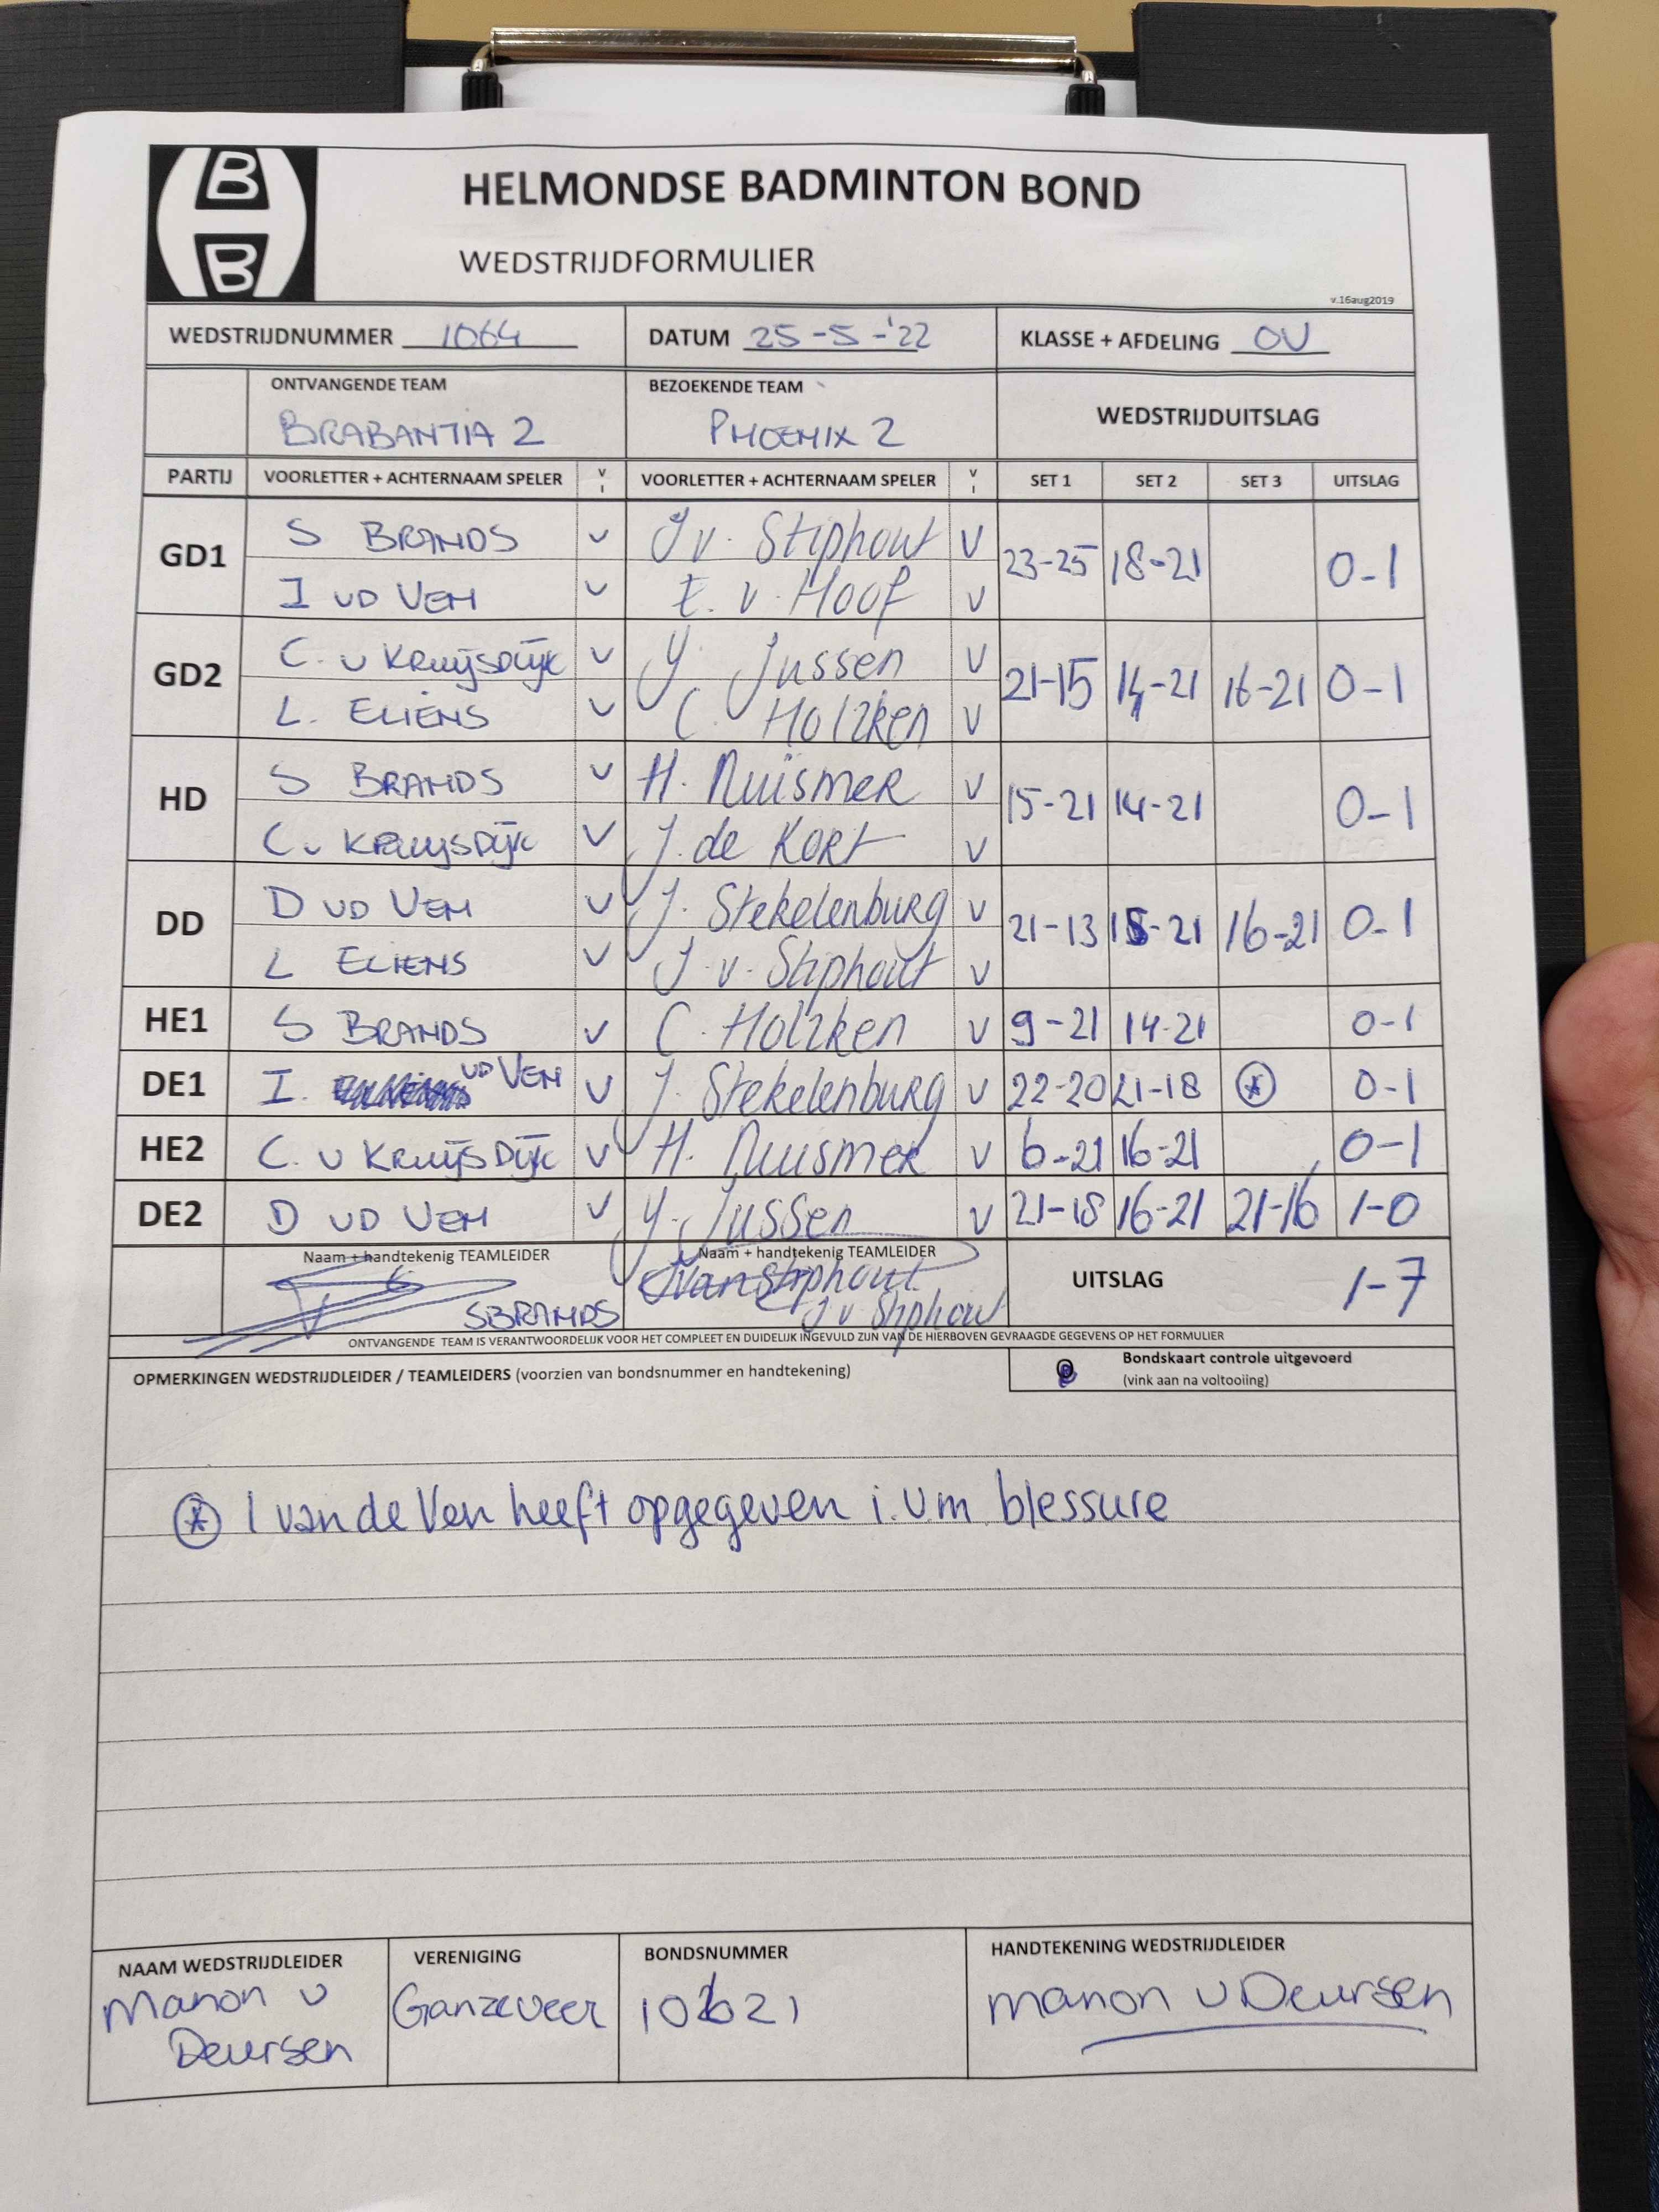 B
B
HELMONDSE BADMINTON BOND
WEDSTRIJDFORMULIER
v.16aug2019
WEDSTRIJDNUMMER 1064 DATUM 25-5-'22 KLASSE + AFDELING OV
ONTVANGENDE TEAM BEZOEKENDE TEAM
BRABANTIA 2 PHOENIX 2 WEDSTRIJDUITSLAG
PARTIJ VOORLETTER + ACHTERNAAM SPELER V - VOORLETTER + ACHTERNAAM SPELER V - SET 1 SET 2 SET 3 UITSLAG
S BRANDS V J v. Stiphout V
GD1 23-25 18-21 0-1
I VD VEN V E. v. Hoof V
C. v KRUIJSDIJK V Y. Jussen V
GD2 21-15 14-21 16-21 0-1
L. ELIENS V C. Holzken V
S BRANDS V H. Nuismer V
HD 15-21 14-21 0-1
C v KRUIJSDIJK V J. de Kort V
D VD VEN V J. Stekelenburg V
DD 21-13 15-21 16-21 0-1
L ELIENS V J. v. Stiphout V
HE1 S BRANDS V C. Holzken V 9-21 14-21 0-1
DE1 I. VD VEN V J. Stekelenburg V 22-20 21-18 * 0-1
HE2 C. v KRUIJSDIJK V H. Nuismer V 6-21 16-21 0-1
DE2 D VD VEN V Y. Jussen V 21-18 16-21 21-16 1-0
Naam + handtekenig TEAMLEIDER Naam + handtekenig TEAMLEIDER
UITSLAG 1-7
JvanStiphout
SBRANDS J v Stiphout
ONTVANGENDE TEAM IS VERANTWOORDELIJK VOOR HET COMPLEET EN DUIDELIJK INGEVULD ZIJN VAN DE HIERBOVEN GEVRAAGDE GEGEVENS OP HET FORMULIER
OPMERKINGEN WEDSTRIJDLEIDER / TEAMLEIDERS (voorzien van bondsnummer en handtekening)
Bondskaart controle uitgevoerd
(vink aan na voltooiing)
* I van de Ven heeft opgegeven i.v.m blessure
NAAM WEDSTRIJDLEIDER VERENIGING BONDSNUMMER HANDTEKENING WEDSTRIJDLEIDER
Manon v Ganzeveer manon v Deursen
Deursen